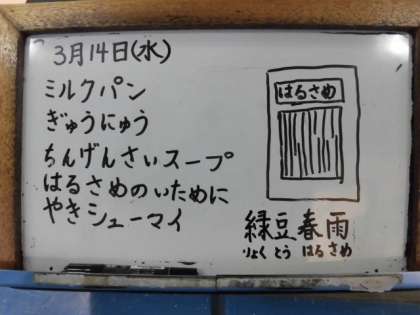 3月14日(水)
ミルクパン
ぎゅうにゅう
ちんげんさいスープ
はるさめのいために
やきシューマイ
はるさめ
緑豆春雨
りょく とう はる さめ